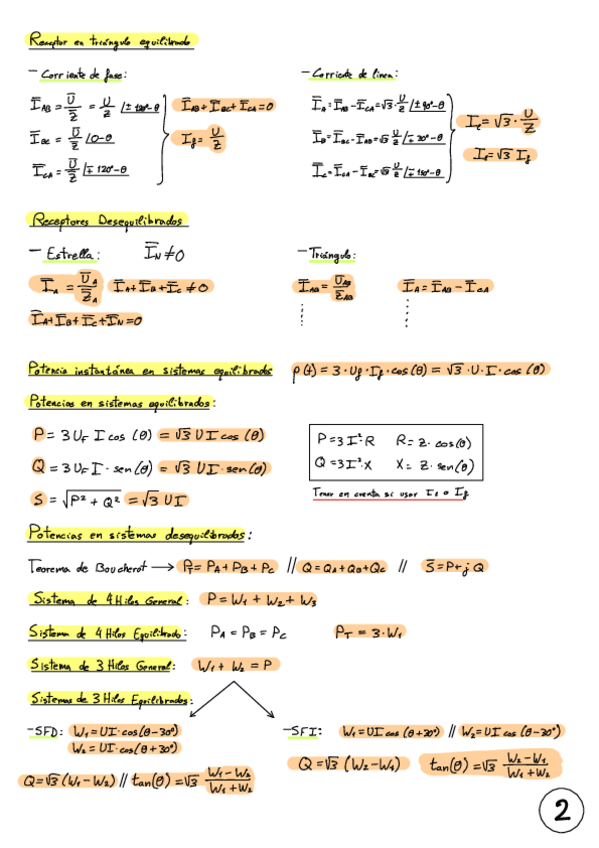 Receptor en triángulo equilibrado
- Corriente de fase:
- Corriente de linea:
I̅AB = U̅/Z̅ = U/Z ∠±120°-θ
I̅AB + I̅BC + I̅CA = 0
I̅BC = U̅/Z̅ ∠0-θ
If = U/Z
I̅CA = U̅/Z̅ ∠∓120°-θ
I̅A = I̅AB - I̅CA = √3·U/Z ∠±90°-θ
I̅B = I̅BC - I̅AB = √3 U/Z ∠∓30°-θ
I̅C = I̅CA - I̅BC = √3 U/Z ∠∓150°-θ
Il = √3 · U/Z
Il = √3 If
Receptores Desequilibrados
- Estrella: I̅N ≠ 0
- Triángulo:
I̅A = U̅A/Z̅A I̅A + I̅B + I̅C ≠ 0
I̅AB = U̅AB/Z̅AB I̅A = I̅AB - I̅CA
I̅A + I̅B + I̅C + I̅N = 0
Potencia instantánea en sistemas equilibrados p(t) = 3·Uf·If·cos(θ) = √3·U·I·cos(θ)
Potencias en sistemas equilibrados:
P = 3 UF I cos(θ) = √3 U I cos(θ)
Q = 3 UF I · sen(θ) = √3 U I · sen(θ)
S = √(P² + Q²) = √3 U I
P = 3 I²·R R = Z·cos(θ)
Q = 3 I²·X X = Z·sen(θ)
Tener en cuenta si usar Il o If
Potencias en sistemas desequilibrados:
Teorema de Boucherot → PT = PA + PB + PC // Q = QA + QB + QC // S̅ = P + j Q
Sistema de 4 Hilos General: P = W1 + W2 + W3
Sistema de 4 Hilos Equilibrado: PA = PB = PC PT = 3·W1
Sistema de 3 Hilos General: W1 + W2 = P
Sistemas de 3 Hilos Equilibrados:
- SFD: W1 = UI·cos(θ-30°)
W2 = UI·cos(θ+30°)
Q = √3 (W1 - W2) // tan(θ) = √3 (W1 - W2)/(W1 + W2)
- SFI: W1 = UI cos(θ+30°) // W2 = UI cos(θ-30°)
Q = √3 (W2 - W1) tan(θ) = √3 (W2 - W1)/(W1 + W2)
2